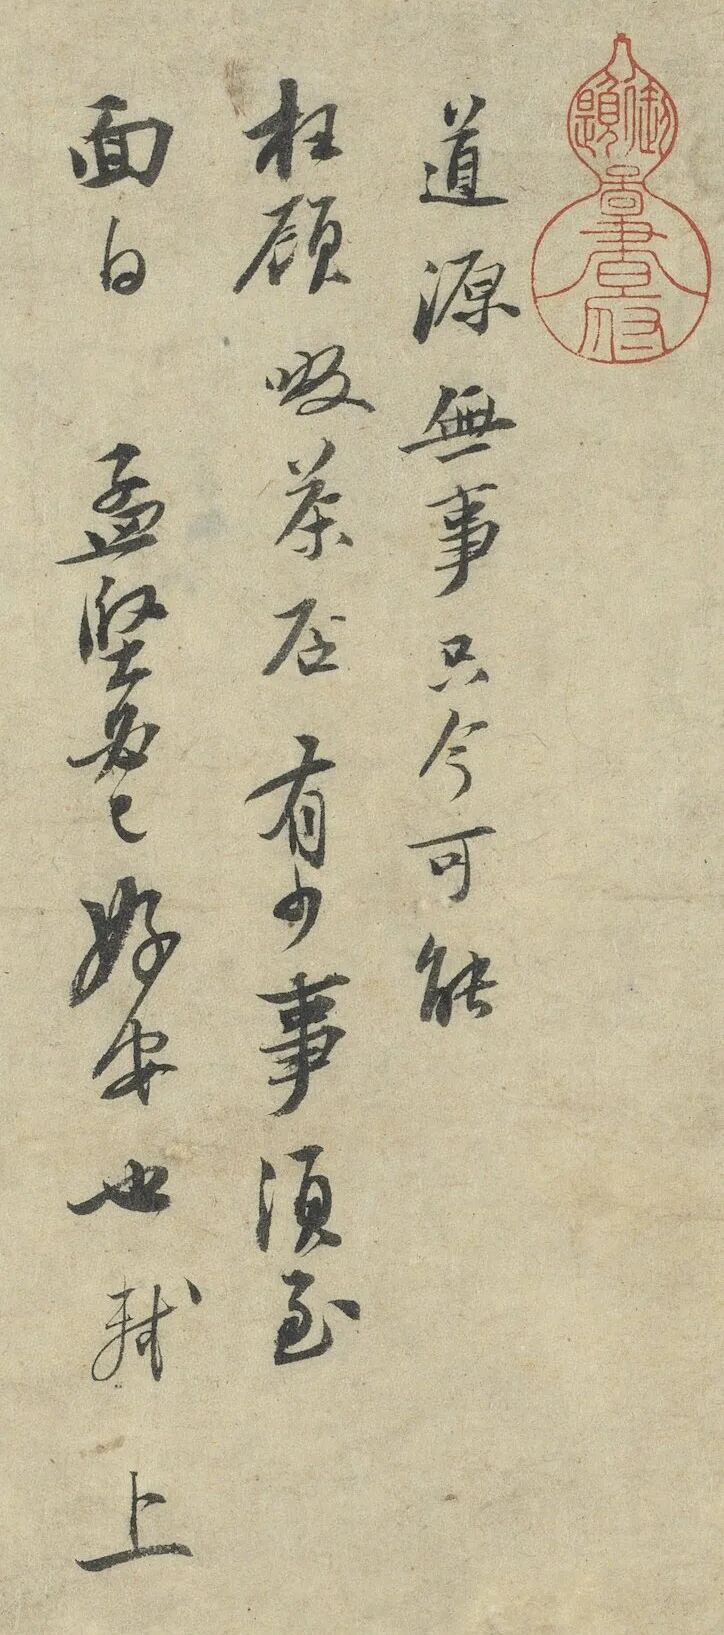 道源無事只今可能
枉顧啜茶否有少事須至
面白 孟堅必已好安也軾上